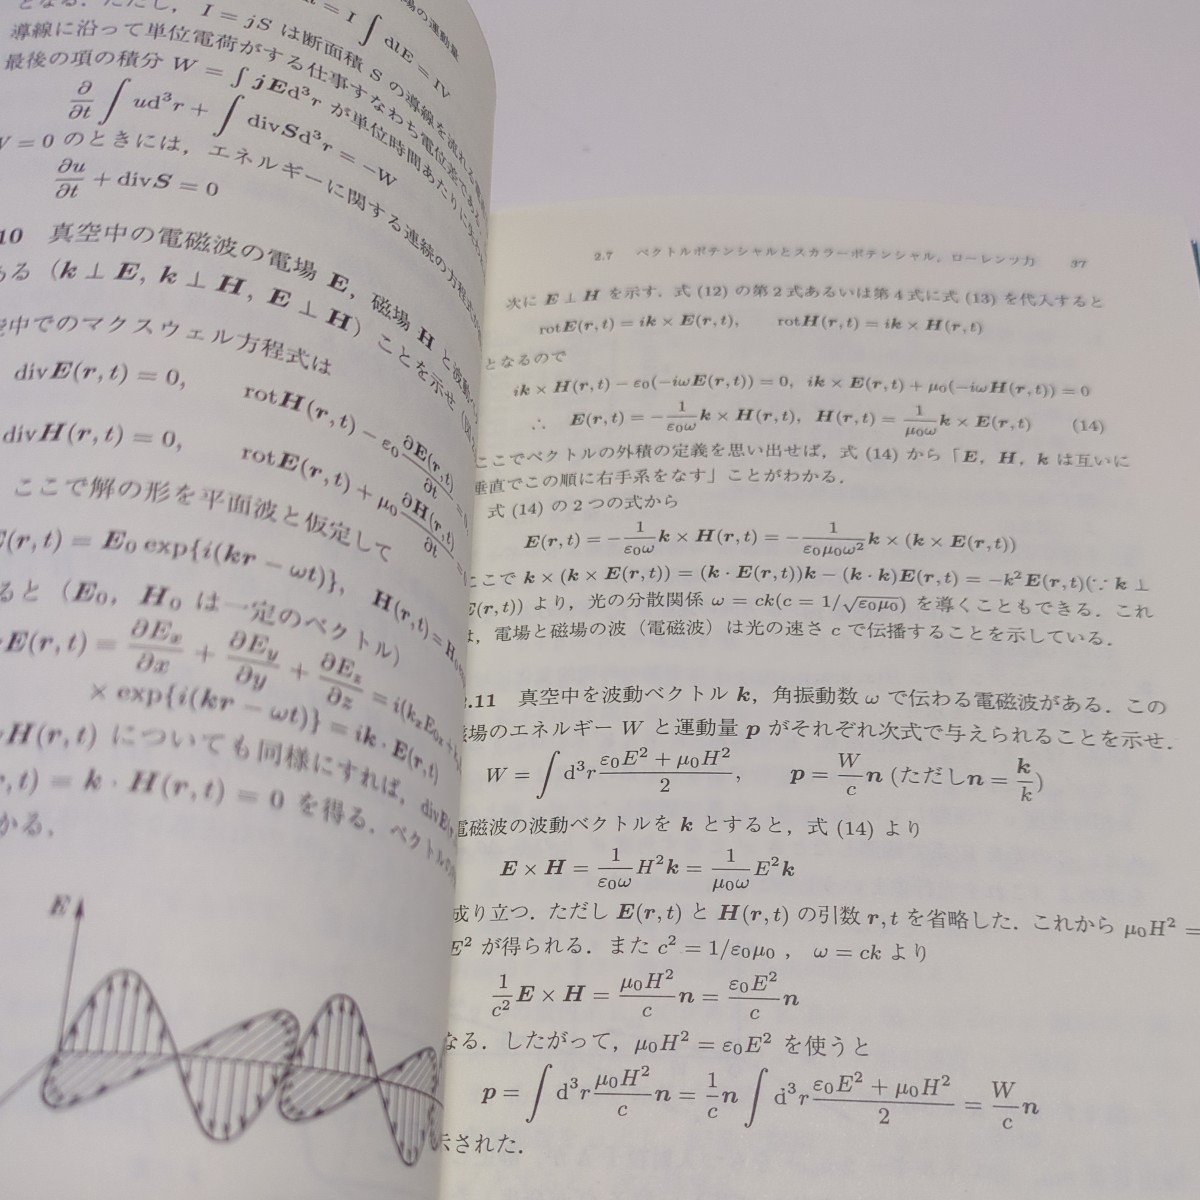 場の運動量
= I ∫ dlE = IV
となる．ただし，I = jS は断面積 S の導線を流れる
導線に沿って単位電荷がする仕事すなわち電位差である
最後の項の積分 W = ∫ jEd³r が単位時間あたりに
∂/∂t ∫ ud³r + ∫ divSd³r = −W
W = 0 のときには，エネルギーに関する連続の方程式
∂u/∂t + divS = 0
10 真空中の電磁波の電場 E，磁場 H と波動
ある (k ⊥ E, k ⊥ H, E ⊥ H) ことを示せ
空中でのマクスウェル方程式は
divE(r, t) = 0, rotH(r, t) − ε₀ ∂E(r, t)/∂t = 0,
divH(r, t) = 0, rotE(r, t) + μ₀ ∂H(r, t)/∂t =
ここで解の形を平面波と仮定して
E(r, t) = E₀ exp{i(kr − ωt)}, H(r, t) = H₀
ると (E₀, H₀ は一定のベクトル)
E(r, t) = ∂Eₓ/∂x + ∂E_y/∂y + ∂E_z/∂z = i(kₓE₀ₓ +
× exp{i(kr − ωt)} = ik · E(r, t)
H(r, t) についても同様にすれば，div
r, t) = k · H(r, t) = 0 を得る．ベクトル
かる．
E
2.7 ベクトルポテンシャルとスカラーポテンシャル，ローレンツ力 37
次に E ⊥ H を示す．式 (12) の第 2 式あるいは第 4 式に式 (13) を代入すると
rotE(r, t) = ik × E(r, t), rotH(r, t) = ik × H(r, t)
となるので
ik × H(r, t) − ε₀(−iωE(r, t)) = 0, ik × E(r, t) + μ₀(−iωH(r, t)) = 0
∴ E(r, t) = −1/(ε₀ω) k × H(r, t), H(r, t) = 1/(μ₀ω) k × E(r, t) (14)
ここでベクトルの外積の定義を思い出せば，式 (14) から「E, H, k は互いに
垂直でこの順に右手系をなす」ことがわかる．
式 (14) の 2 つの式から
E(r, t) = −1/(ε₀ω) k × H(r, t) = −1/(ε₀μ₀ω²) k × (k × E(r, t))
ここで k × (k × E(r, t)) = (k · E(r, t))k − (k · k)E(r, t) = −k²E(r, t)(∵ k ⊥
E(r, t)) より，光の分散関係 ω = ck(c = 1/√ε₀μ₀) を導くこともできる．これ
は，電場と磁場の波（電磁波）は光の速さ c で伝播することを示している．
2.11 真空中を波動ベクトル k，角振動数 ω で伝わる電磁波がある．この
磁場のエネルギー W と運動量 p がそれぞれ次式で与えられることを示せ．
W = ∫ d³r (ε₀E² + μ₀H²)/2, p = W/c n (ただしn = k/k)
電磁波の波動ベクトルを k とすると，式 (14) より
E × H = 1/(ε₀ω) H²k = 1/(μ₀ω) E²k
成り立つ．ただし E(r, t) と H(r, t) の引数 r, t を省略した．これから μ₀H² =
E² が得られる．また c² = 1/ε₀μ₀ ， ω = ck より
1/c² E × H = μ₀H²/c n = ε₀E²/c n
なる．したがって，μ₀H² = ε₀E² を使うと
p = ∫ d³r μ₀H²/c n = 1/c n ∫ d³r (ε₀E² + μ₀H²)/2 = W/c n
示された．